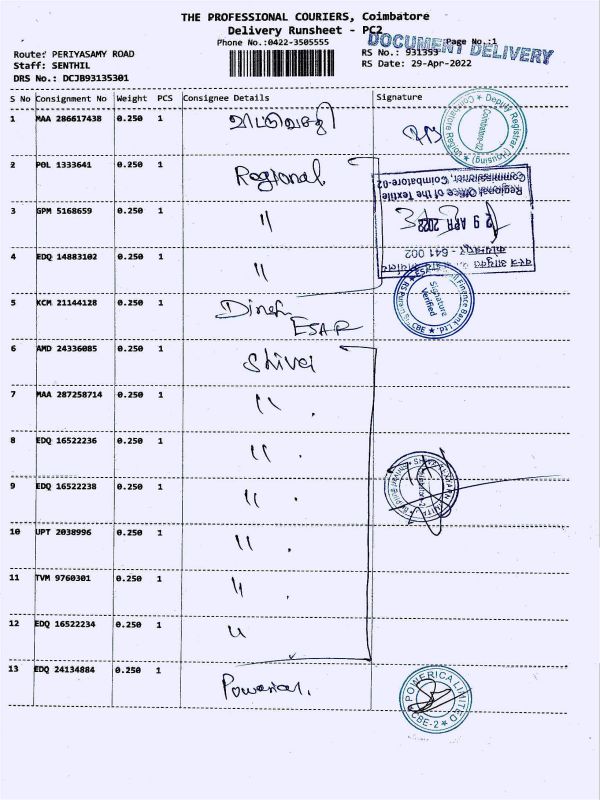 THE PROFESSIONAL COURIERS, Coimbatore
Delivery Runsheet - PC2
Phone No.:0422-3505555
Page No.:1
DOCUMENT DELIVERY
Route: PERIYASAMY ROAD
RS No.: 931353
Staff: SENTHIL
RS Date: 29-Apr-2022
DRS No.: DCJB93135301
S No Consignment No Weight PCS Consignee Details Signature
1 MAA 286617438 0.250 1
Deputy Registrar (Housing)
Coimbatore-02
2 POL 1333641 0.250 1 Regional
Regional Office of the Textile
Commissioner, Coimbatore-02
3 GPM 5168659 0.250 1 "
29 APR 2022
4 EDQ 14883102 0.250 1 "
641 002
5 KCM 21144128 0.250 1 Dinesh
ESAF
Finance Bank Ltd. CBE
Signature
Verified
6 AMD 24336085 0.250 1 Shiva
7 MAA 287258714 0.250 1 "
8 EDQ 16522236 0.250 1 "
9 EDQ 16522238 0.250 1 "
10 UPT 2038996 0.250 1 "
11 TVM 9760301 0.250 1 "
12 EDQ 16522234 0.250 1 "
13 EDQ 24134884 0.250 1 Powerica.
POWERICA LIMITED
CBE-2